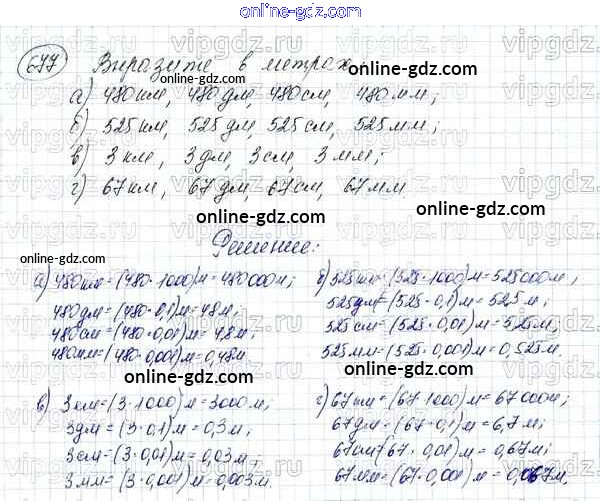 online-gdz.ru
677 Выразите в метрах online-gdz.ru
а) 480 км, 480 дм, 480 см, 480 мм;
б) 525 км, 525 дм, 525 см, 525 мм;
в) 3 км, 3 дм, 3 см, 3 мм;
г) 67 км, 67 дм, 67 см, 67 мм
online-gdz.ru
Решение:
online-gdz.ru
а) 480 км = (480 · 1000) м = 480 000 м;
480 дм = (480 · 0,1) м = 48 м;
480 см = (480 · 0,01) м = 4,8 м;
480 мм = (480 · 0,001) м = 0,48 м
б) 525 км = (525 · 1000) м = 525 000 м;
525 дм = (525 · 0,1) м = 52,5 м;
525 см = (525 · 0,01) м = 5,25 м;
525 мм = (525 · 0,001) м = 0,525 м.
online-gdz.ru
online-gdz.ru
в) 3 км = (3 · 1000) м = 3000 м;
3 дм = (3 · 0,1) м = 0,3 м;
3 см = (3 · 0,01) м = 0,03 м;
3 мм = (3 · 0,001) м = 0,003 м.
г) 67 км = (67 · 1000) м = 67 000 м;
67 дм = (67 · 0,1) м = 6,7 м;
67 см = (67 · 0,01) м = 0,67 м;
67 мм = (67 · 0,001) м = 0,067 м.
online-gdz.ru